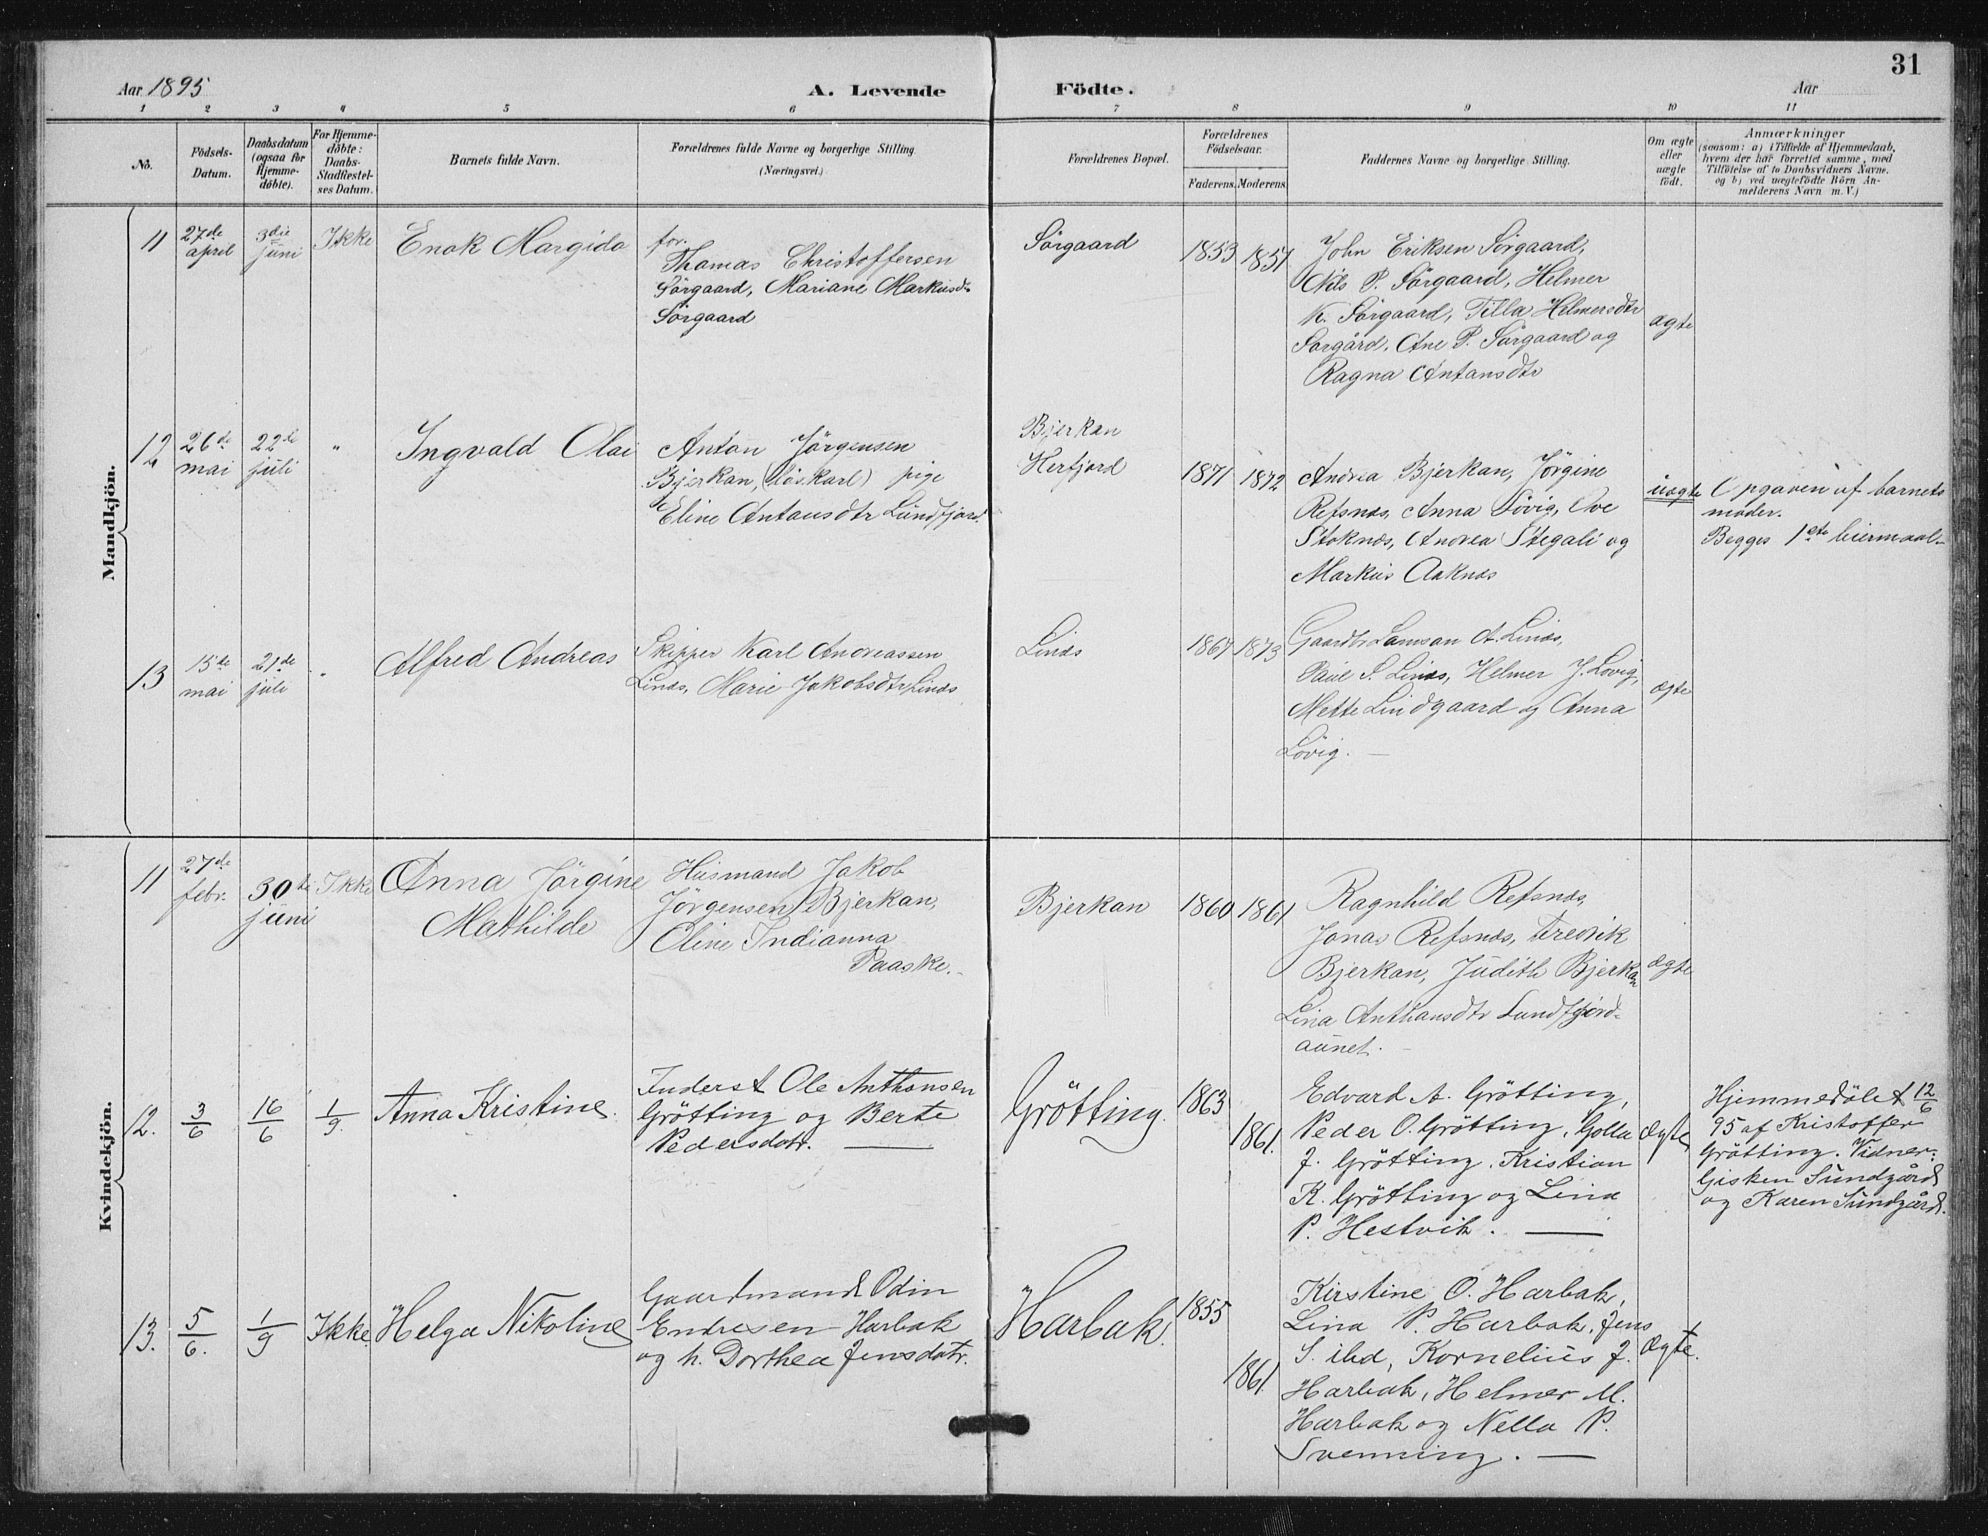 Aar 1895
A. Levende
Födte.
Aar
31
1 2 3 4 5 6 7 8 9 10 11
No.
Födsels-
Datum.
Daabsdatum
(ogsaa for
Hjemme-
döbte).
For Hjemme-
döbte:
Daabs-
Stadfæstel-
ses Datum.
Barnets fulde Navn.
Forældrenes fulde Navne og borgerlige Stilling.
(Næringsvei.)
Forældrenes Bopæl.
Forældrenes
Födselsaar.
Faderens. Moderens.
Faddernes Navne og borgerlige Stilling.
Om ægte
eller
uægte
födt.
Anmærkninger
(saasom: a) i Tilfælde af Hjemmedaab,
hvem der har forrettet samme, med
Tilföielse af to Daabsvidners Navne.
og b) ved uægtefödte Börn An-
melderens Navn m. V.)
Mandkjön.
11
27de
april
3die
juni
Ikke
Enok Margido
for.
Thomas Christoffersen
Sörgaard, Mariane Markusdtr
Sörgaard
Sörgaard
1853
1851
John Eriksen Sörgaard,
Nils P. Sörgaard, Helmer
K. Sörgaard, Tilla Helmersdtr
Sörgård, Ane P. Sörgaard og
Ragna Antansdtr
ægte
12
26de
mai
22de
juli
"
Ingvald Olai
Anton Jörgensen
Bjerkan, (löskarl) pige
Eline Antonsdtr Sundfjord.
Bjerkan
Herfjord
1871
1872
Andrea Bjerkan, Jörgine
Refsnæs, Anna Lövig, Ove
Stoknæs, Andrea Stegali og
Markus Aaknæs
uægte
Opgaven af barnets
moder.
Begges 1ste leiermaal.
13
15de
mai
21de
juli
"
Alfred Andreas
Skipper Karl Andreassen
Linæs, Marie Jakobsdtr Linæs
Linæs
1867
1873
Gaardbr. Lamsan A. Linæs,
Paul S. Linæs, Helmer J. Lovig,
Mette Lindgaard og Anna
Lövig.
ægte
Kvindekjön.
11
27de
febr.
30te
juni
Ikke
Anna Jörgine
Mathilde
Husmand Jakob
Jörgensen Bjerkan,
Oline Indianna
Paaske.
Bjerkan
1860
1861
Ragnhild Refsnæs,
Jonas Refsnæs, Fredrik
Bjerkan, Judith Bjerkan
Lina Anthansdtr Sundfjord-
aunet.
ægte
12.
3/6
16/6
1/9.
Anna Kristine.
Inderst Ole Anthonsen
Grötting og Berte
Pedersdatr.
Grötting.
1863
1861.
Edvard A. Grötting,
Peder O. Grötting, Golla
J. Grötting, Kristian
K. Grötting og Lina
P. Hestvik.
Ægte
Hjemmedöbt 12/6
95 af Kristoffer
Grötting. Vidner:
Gisken Sundgård
og Karen Sundgård.
13.
5/6.
1/9
Ikke.
Helga Nikoline
Gaardmand Odin
Endresen Harbak
og h. Dorthea Jensdatr.
Harbak.
1855
1861.
Kirstine O. Harbak,
Lina P. Harbak, Jens
S. ibd, Kornelius J.
Harbak, Helmer M.
Harbak og Nella P.
Svenning.
Ægte.